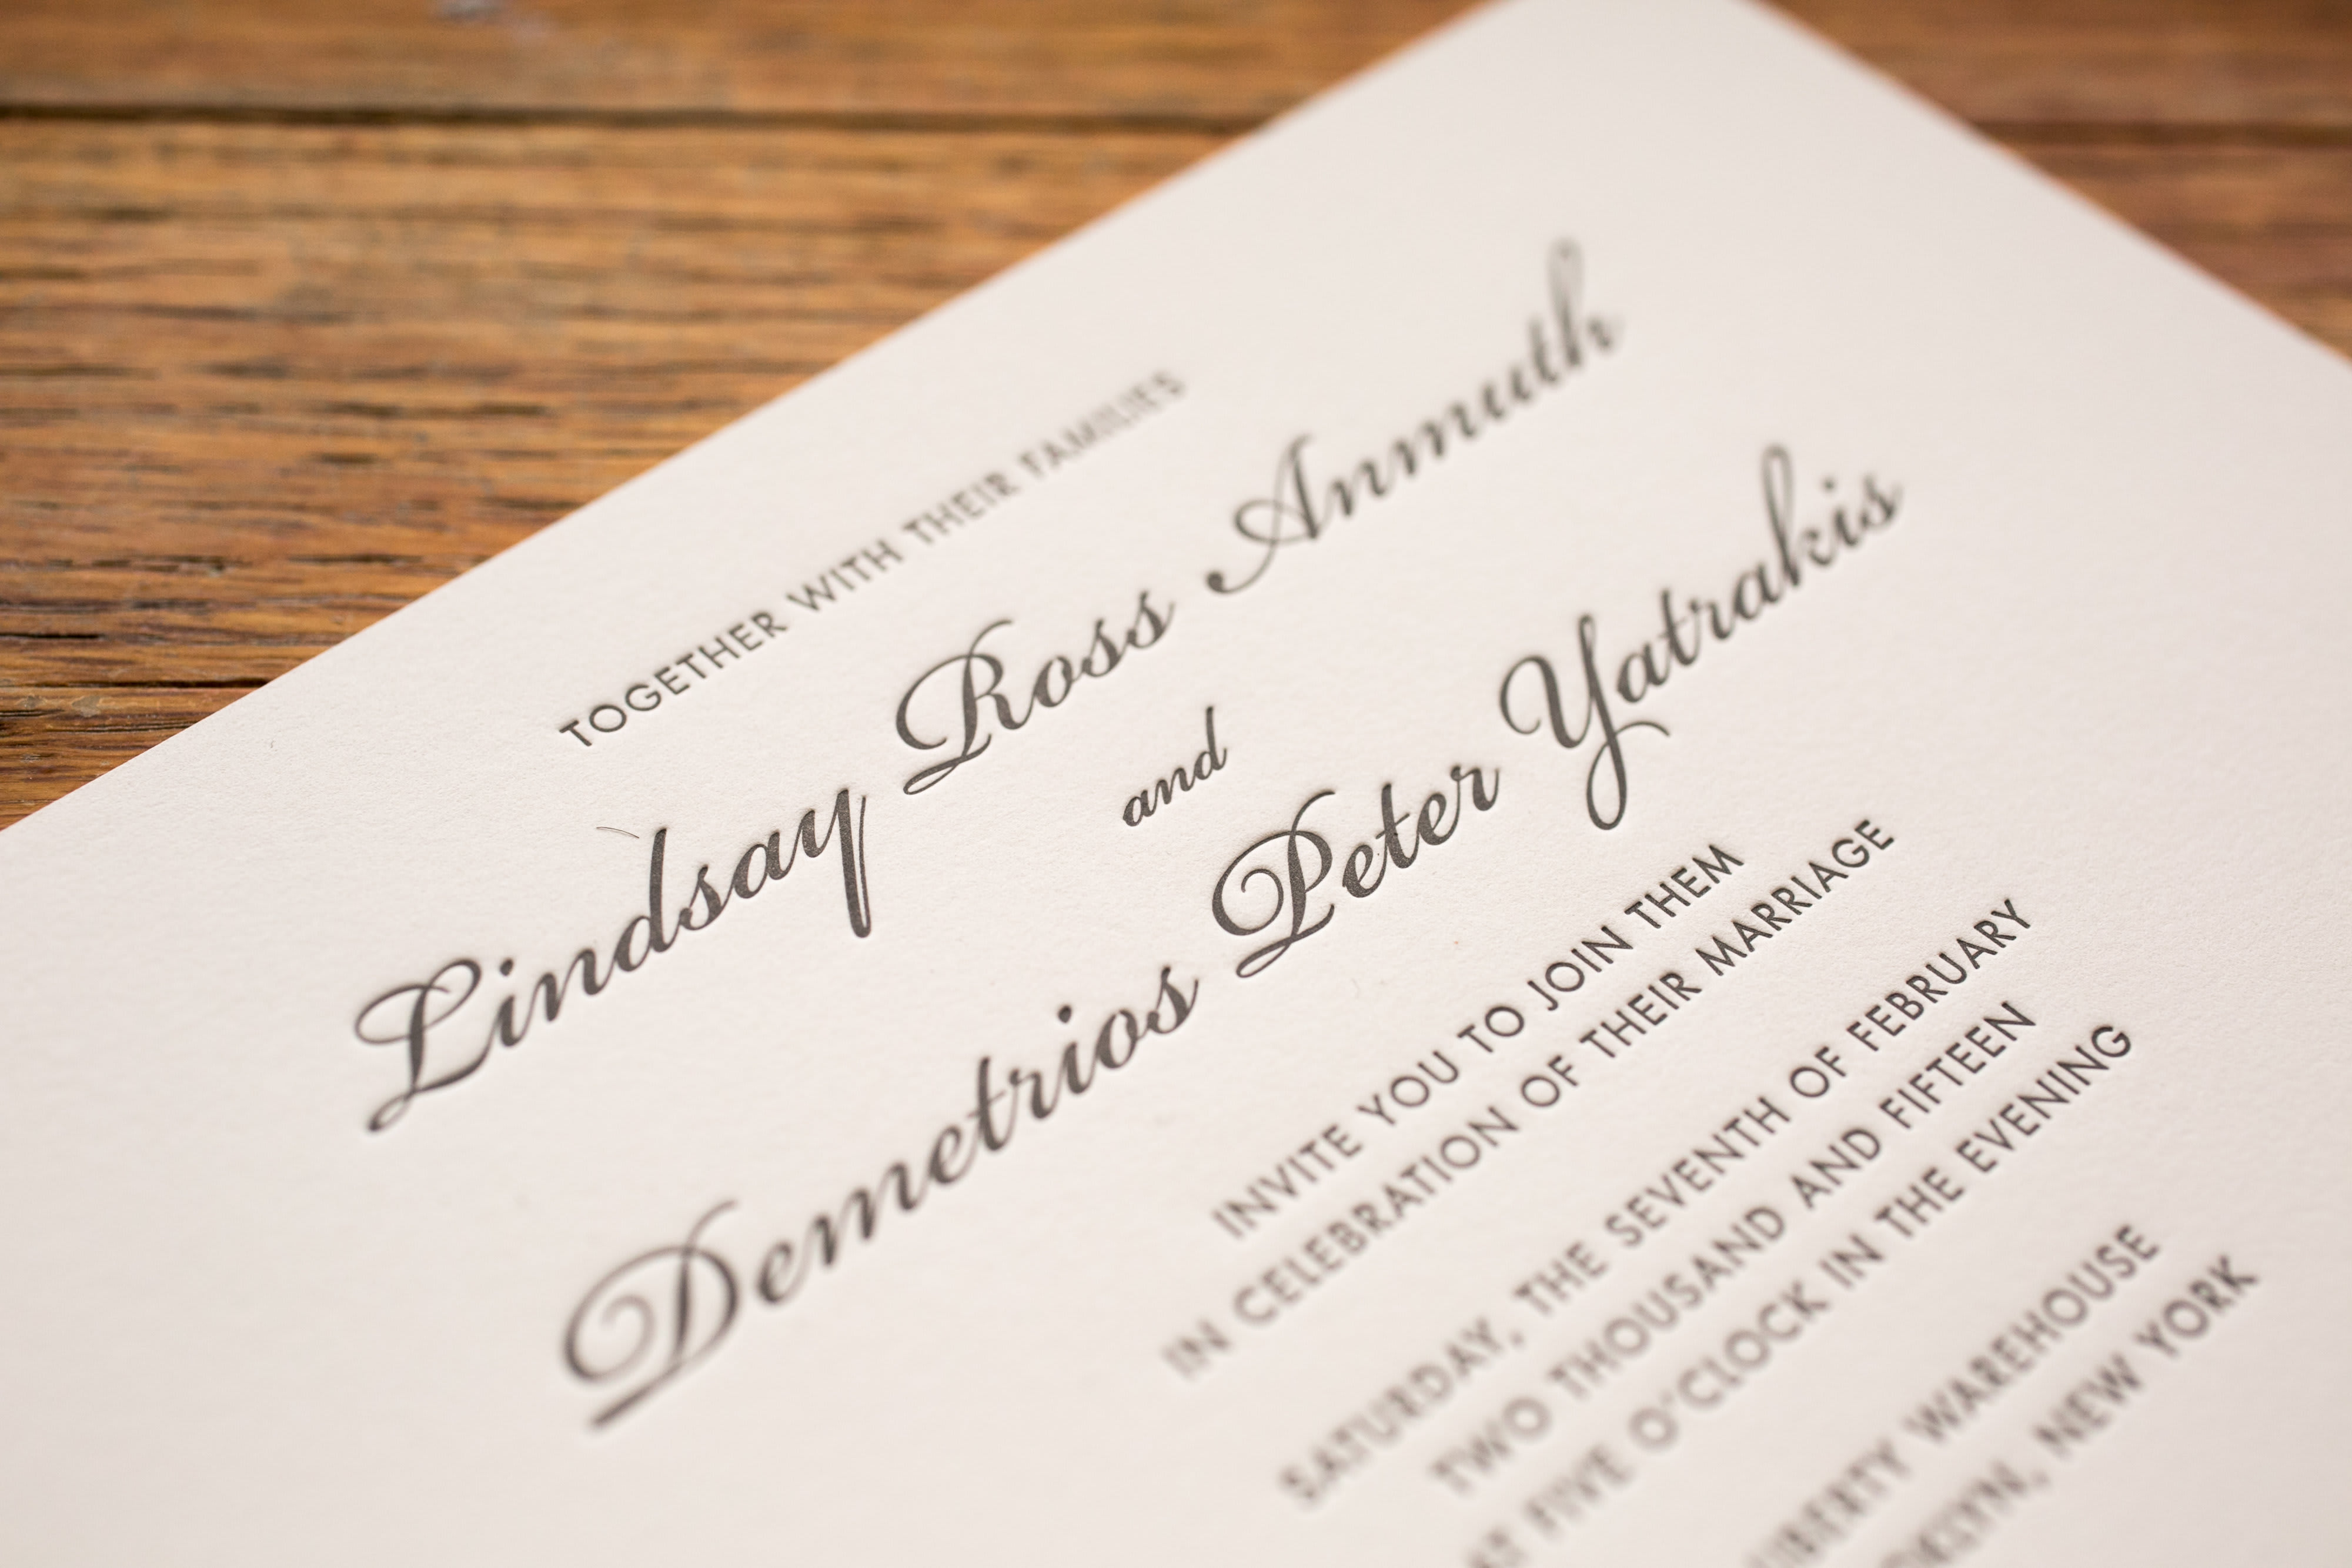 TOGETHER WITH THEIR FAMILIES
Lindsay Ross Anmuth
and
Demetrios Peter Yatrakis
INVITE YOU TO JOIN THEM
IN CELEBRATION OF THEIR MARRIAGE
SATURDAY, THE SEVENTH OF FEBRUARY
TWO THOUSAND AND FIFTEEN
AT FIVE O'CLOCK IN THE EVENING
LIBERTY WAREHOUSE
NEW YORK